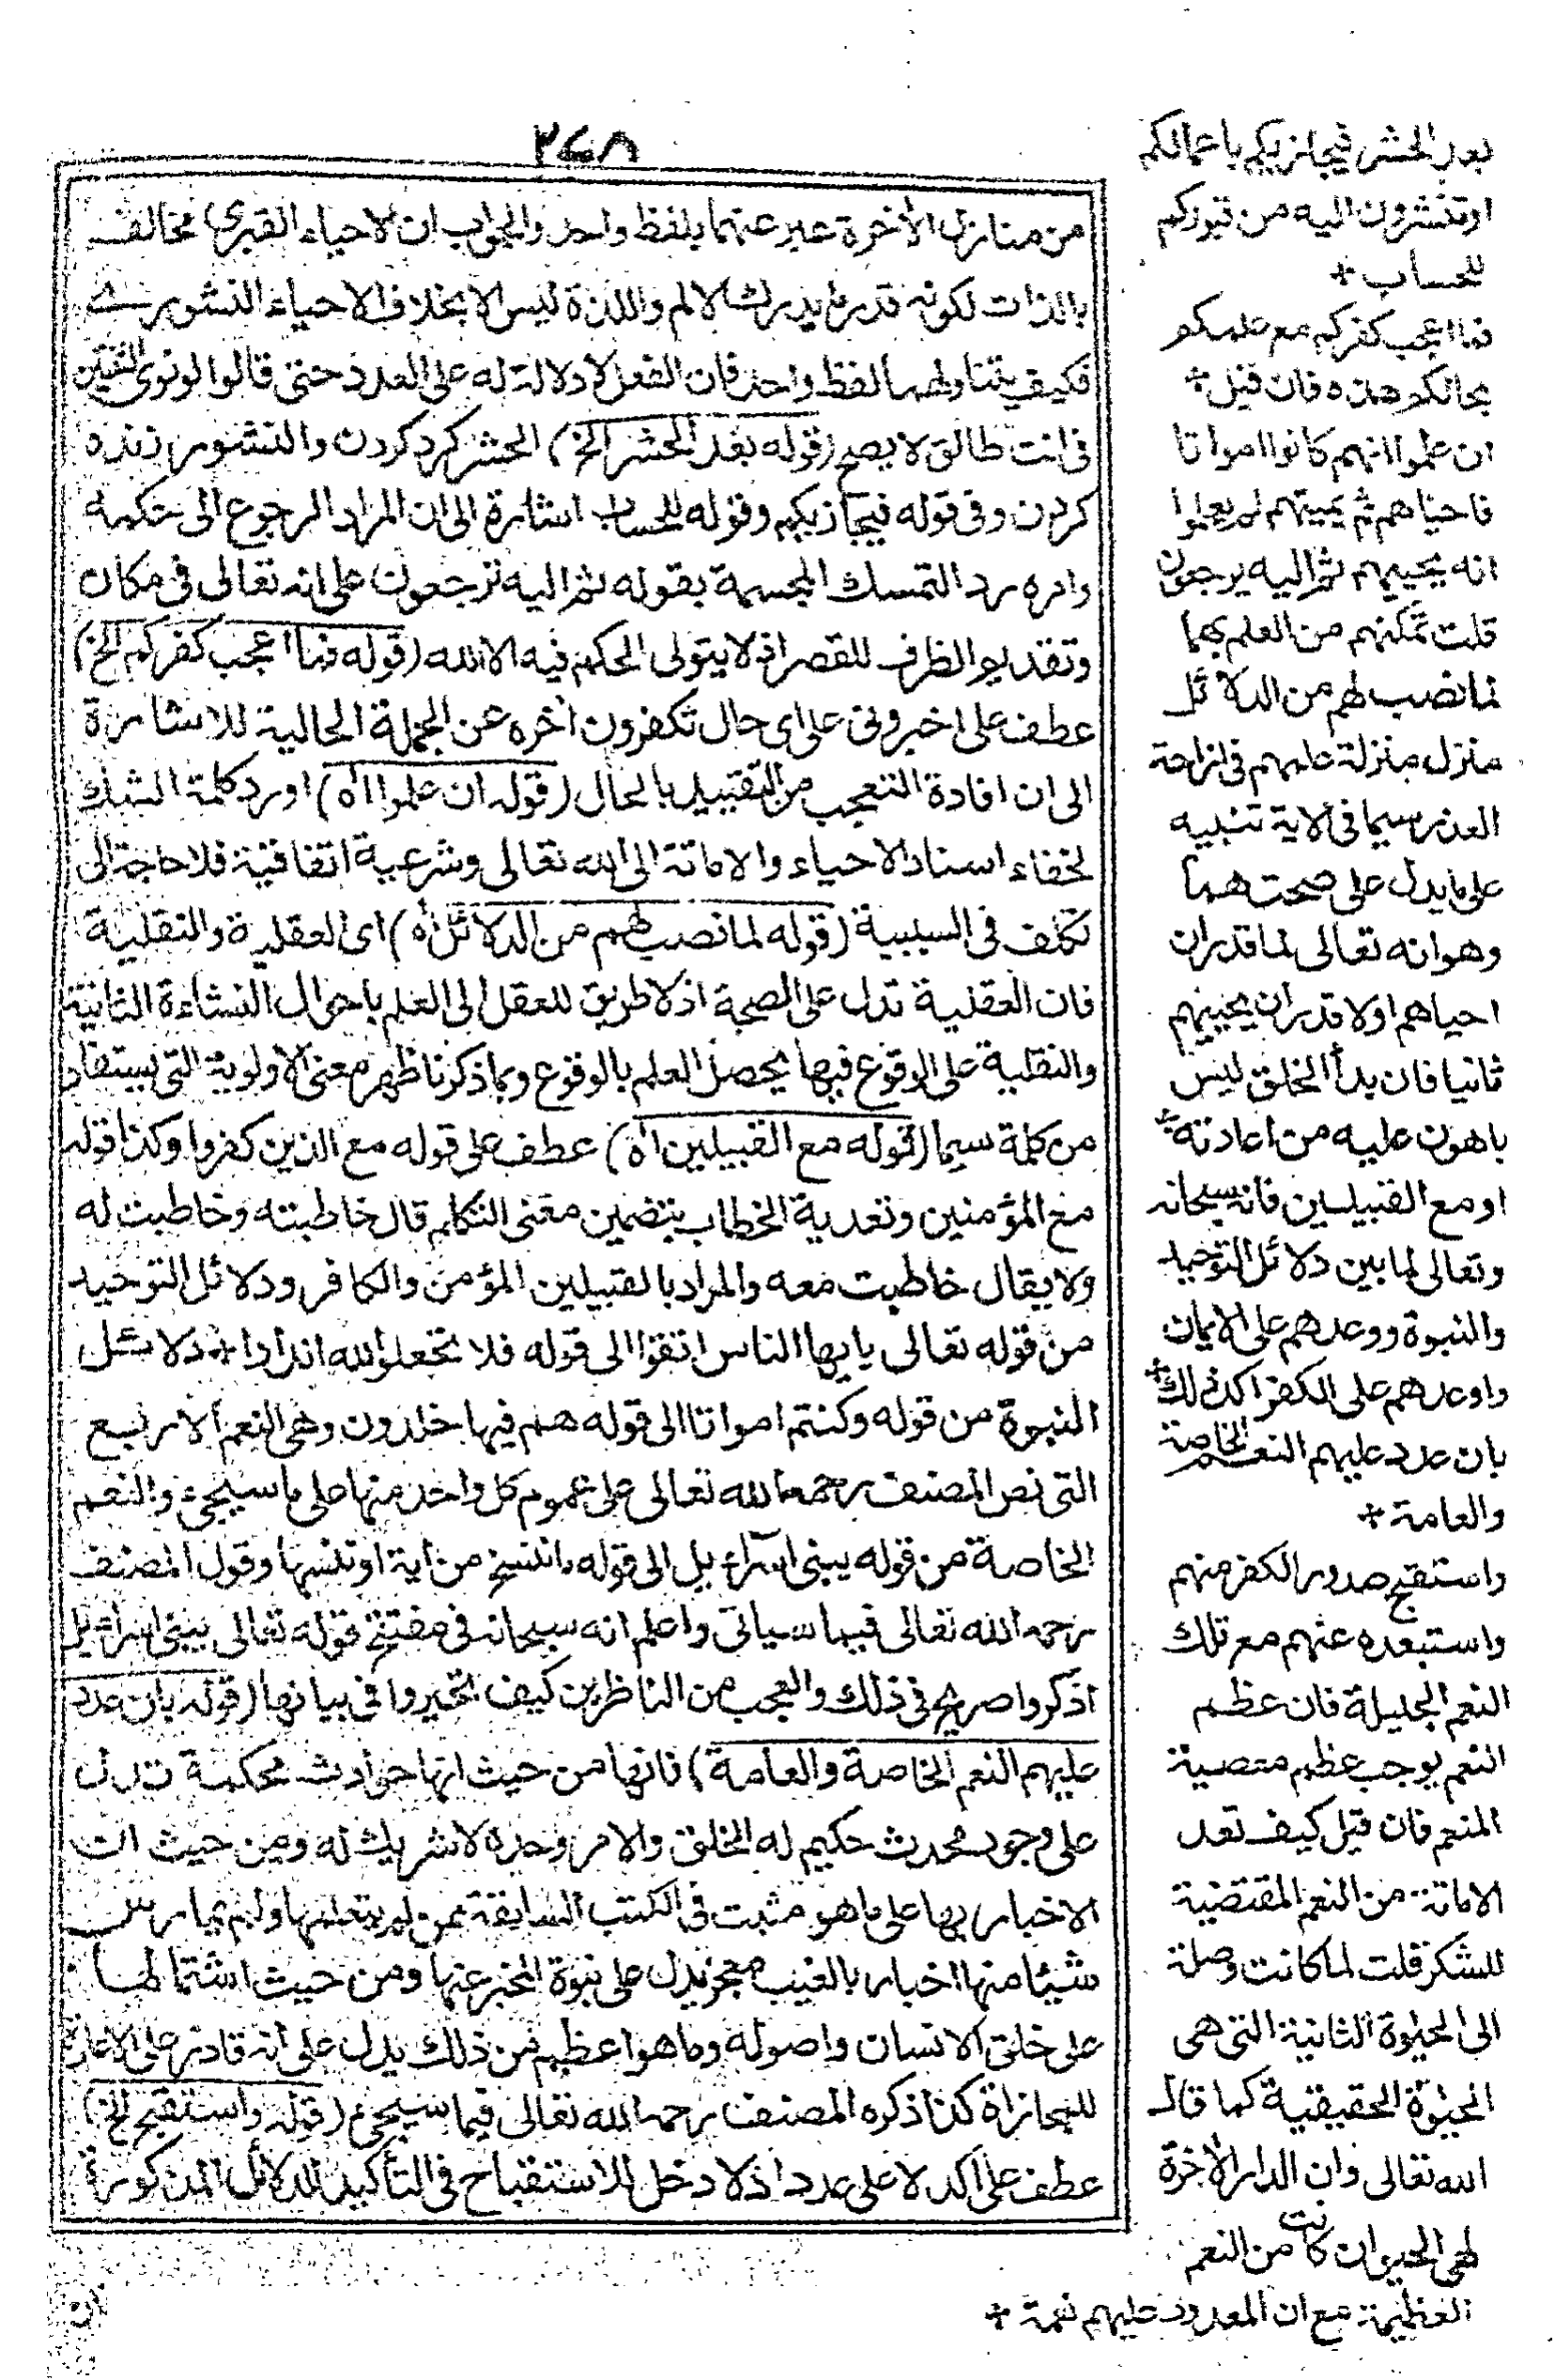 ٢٤٨
من منازل الأخرة عبر عنهما بلفظ واحد والجواب ان الاحياء القبري مخالف
بالذات لكونه قدر ما يدرك الالم واللذة ليس الا بخلاف الاحياء النشوري
فكيف يتناولهما لفظ واحد فان الفعل لا دلالة له على العدد حتى قالوا لو نوى الثنتين
فى انت طالق لا يصح (قوله بعد الحشر الخ) الحشر كرد كردن والنشور زنده
كردن وفى قوله فيجازيكم وقوله للحساب اشارة الى ان المراد الرجوع الى حكمه
وامره رد التمسك المجسمة بقوله ثم اليه ترجعون على انه تعالى فى مكان
وتقديم الظرف للقصر اذ لا يتولى الحكم فيه الا الله (قوله فما اعجب كفركم الخ)
عطف على اخبرونى على اى حال تكفرون اخره عن الجملة الحالية للاشارة
الى ان افادة التعجب من التقييد بالحال (قوله ان علموا اه) اورد كلمة الشك
لخفاء اسناد الاحياء والاماتة الى الله تعالى وشرعية اتفاقية فلا حاجة الى
تكلف فى السببية (قوله لما نصب لهم من الدلائل اه) اى العقلية والنقلية
فان العقلية تدل على الصحة اذ لا طريق للعقل الى العلم باحوال النشاءة الثانية
والنقلية على الوقوع فبها يحصل العلم بالوقوع وبما ذكرنا ظهر معنى الاولوية التى يستفاد
من كلمة سيما (قوله مع القبيلين اه) عطف على قوله مع الذين كفروا وكذا قوله
مع المؤمنين وتعدية الخطاب بتضمين معنى التكلم قال خاطبته وخاطبت له
ولا يقال خاطبت معه والمراد بالقبيلين المؤمن والكافر ودلائل التوحيد
من قوله تعالى يايها الناس اتقوا الى قوله فلا تجعلوا لله اندادا * دلائل
النبوة من قوله وكنتم امواتا الى قوله هم فيها خلدون وهى النعم الاربع
التى نص المصنف رحمه الله تعالى على عموم كل واحد منها على ما سيجىء والنعم
الخاصة من قوله يبنى اسراءيل الى قوله ما ننسخ من اية او ننسها وقول المصنف
رحمه الله تعالى فيما سياتى واعلم انه سبحانه فى مفتتح قوله تعالى يبنى اسراءيل
اذكروا صريح فى ذلك والعجب من الناظرين كيف تحيروا فى بيانها (قوله بان عدد
عليهم النعم الخاصة والعامة) فانها من حيث انها حوادث محكمة تدل
على وجود محدث حكيم له الخلق والامر وحده لا شريك له ومن حيث ان
الاخبار بها على ما هو مثبت فى الكتب السابقة ممن لم يتعلمها ولم يمارس
شيئا منها اخبار بالغيب معجز يدل على نبوة المخبر عنها ومن حيث اشتمالها
على خلق الانسان واصوله وما هو اعظم من ذلك يدل على انه قادر على الاعادة
للمجازاة كذا ذكره المصنف رحمه الله تعالى فيما سيجىء (قوله واستقبح الخ)
عطف على اكد لا على عدد اذ لا دخل للاستقباح فى التأكيد للدلائل المذكورة
بعد الحشر فيجازيكم باعمالكم
او تنشرون اليه من قبوركم
للحساب *
فما اعجب كفركم مع علمكم
بحالكم هذه فان قيل *
ان علموا انهم كانوا امواتا
فاحياهم ثم يميتهم لم يعلموا
انه يحييهم ثم اليه يرجعون
قلت تمكنهم من العلم بهما
لما نصب لهم من الدلائل
منزل منزلة علمهم فى ازاحة
العذر سيما فى الاية تنبيه
على ما يدل على صحتهما
وهو انه تعالى لما قدر ان
احياهم اولا قدر ان يحييهم
ثانيا فان بدأ الخلق ليس
باهون عليه من اعادته *
او مع القبيلين فانه سبحانه
وتعالى لما بين دلائل التوحيد
والنبوة ووعدهم على الايمان
واوعدهم على الكفر اكد ذلك *
بان عدد عليهم النعم الخاصة
والعامة *
واستقبح صدور الكفر منهم
واستبعده عنهم مع تلك
النعم الجليلة فان عظم
النعم يوجب عظم معصية
المنعم فان قيل كيف تعد
الاماتة من النعم المقتضية
للشكر قلت لما كانت وصلة
الى الحيوة الثانية التى هى
الحيوة الحقيقية كما قال
الله تعالى وان الدار الاخرة
لهى الحيوان كانت من النعم
العظيمة مع ان المعدود عليهم نعمة *